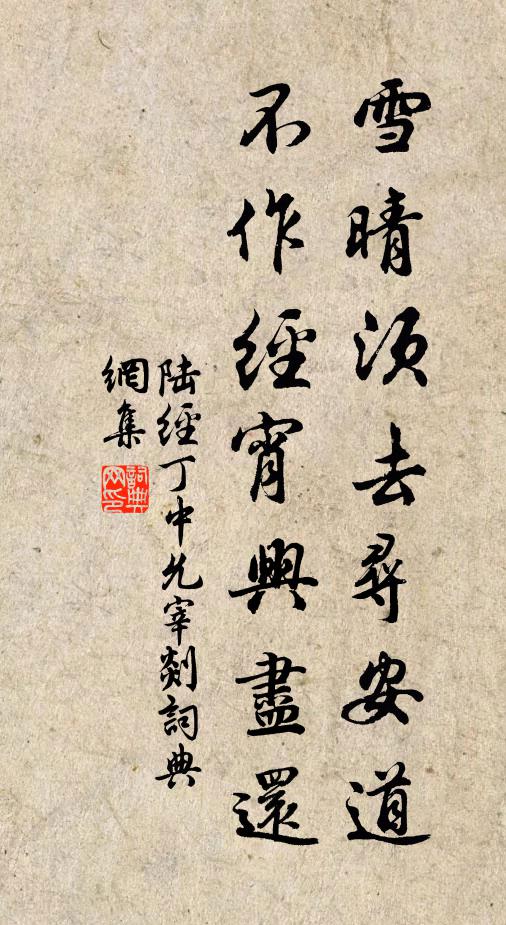 雪晴須去尋安道
不作經宵興盡還
陆經丁中允宰剡詞典
網集
詞典
网印